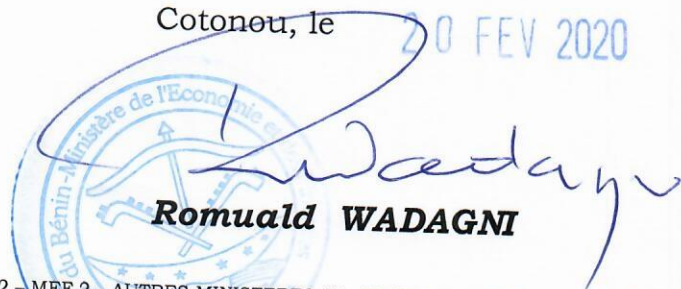 Cotonou, le 20 FEV 2020
du Bénin-Ministère de l'Economie
Wadagni
Romuald WADAGNI
2 – MEF 2 – AUTRES MINISTERES